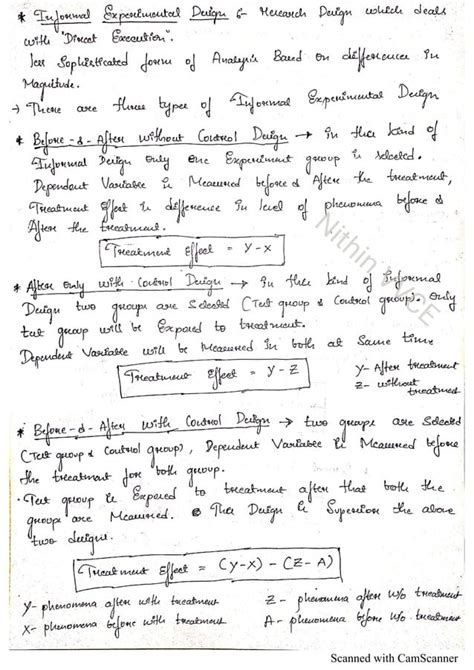 * Informal Experimental Design :- Research Design which deals
with "Direct Execution".
Less Sophisticated form of Analysis Based on difference in
Magnitude.
→ There are three types of Informal Experimental Design
* Before - & - After without Control Design → in this kind of
Informal Design only one Experiment group is selected.
Dependent Variable is Measured before & After the treatment,
Treatment Effect is difference in level of phenomena before &
After the treatment.
Treatment Effect = Y-X
* After only with Control Design → In this kind of Informal
Design two groups are Selected (Test group & Control group). Only
test group will be Exposed to treatment.
Dependent Variable will be Measured in both at Same time
Treatment Effect = Y-Z
Y- After treatment
Z- without treatment
* Before - & - After with Control Design → two groups are Selected
(Test group & Control group), Dependent Variable is Measured before
the treatment for both group.
· Test group is Exposed to treatment after that both the
groups are Measured. This Design is Superior the above
two designs.
Treatment Effect = (Y-X) - (Z-A)
Y- phenomena after with treatment
Z - phenomena after w/o treatment
X- phenomena before with treatment
A - phenomena before w/o treatment
Nithin VVCE
Scanned with CamScanner